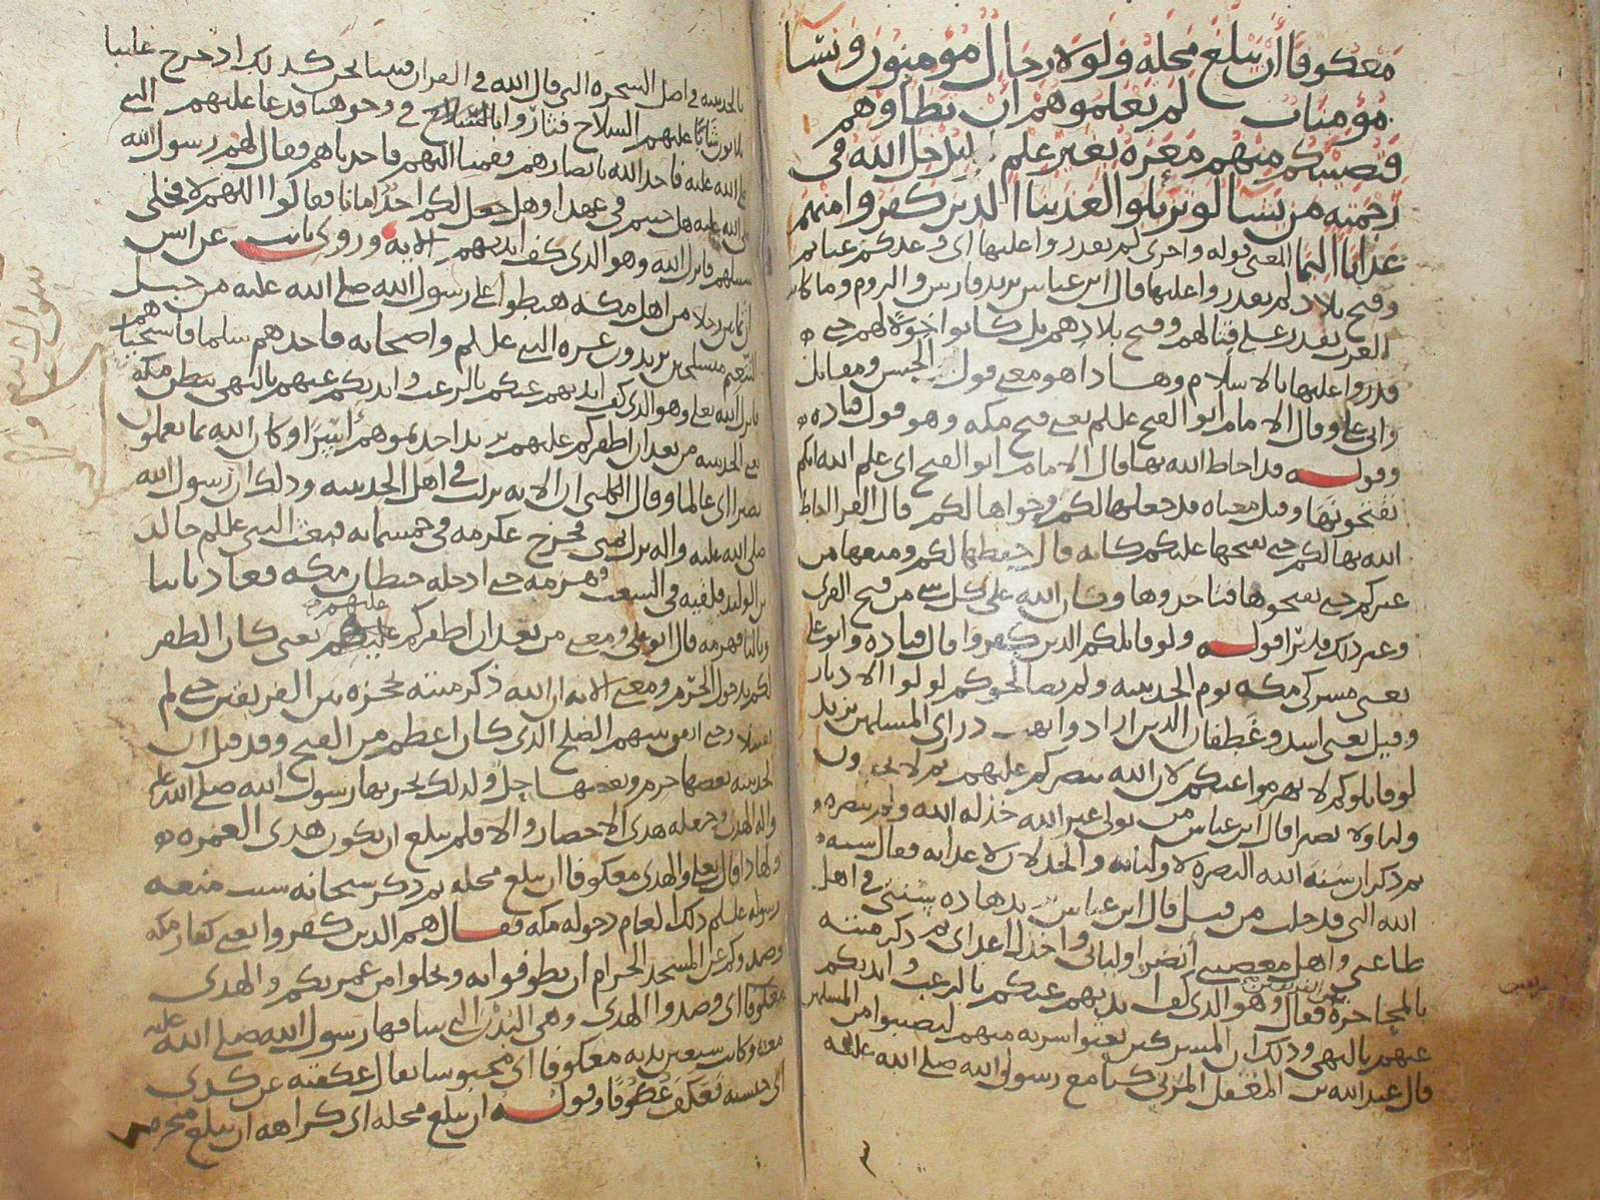 معكوفا أن يبلغ محله ولولا رجال مؤمنون ونسا
مؤمنات لم تعلموهم أن تطاوهم
فتصيبكم منهم معرة بغير علم ليدخل الله في
رحمته من يشا لو تزيلوا لعذبنا الذين كفروا منهم
عذابا اليما المعنى قوله واخرى لم تقدروا عليها اى وعدكم غنايم
وفتح بلاد لم تقدروا عليها قال ابن عباس يريد فارس والروم وما كان
العرب تقدر على قتالهم وفتح بلادهم بل كانوا خولا لهم حتى
قدروا عليها بالاسلام وهذا هو معنى قول الحسن ومقاتل
وابى على وقال الامام ابو الفتح عللم يعنى فتح مكه وهو قول قتاده
وقوله قد احاط الله بها قال الامام ابو الفتح اى علم الله انكم
تفتحونها وقيل معناه قد جعلها لكم وحواها لكم قال الفرا احاط
الله بها لكم حتى يفتحها عليكم كانه قال حفظها لكم ومنعها من
غيركم حتى تفتحوها فتاخذوها وكان الله على كل شى من فتح القرى
وغير ذلك قديرا قوله ولو قاتلكم الذين كفروا قال قتاده وابو على
يعنى مشركى مكه يوم الحديبيه ولم يصالحوكم لولوا الادبار
وقيل يعنى اسد وغطفان الذين ارادوا نهب ذرارى المسلمين يريد
لو قاتلوكم لانهزموا عنكم لان الله ينصركم عليهم ثم لا يجدون
وليا ولا نصيرا قال ابن عباس من تولى غير الله خذله الله ولم ينصره
ثم ذكر ان سنة الله النصرة لاوليائه والخذلان لاعدائه فقال سنة
الله التى قد خلت من قبل قال ابن عباس يريد هذه سنتى فى اهل
طاعتى واهل معصيتى أنصر اوليائى واخذل اعداى ثم ذكر منته
بالمحاجزة فقال وهو الذى كف ايديهم عنكم بالرعب وايديكم
عنهم بالنهى وذلك ان المشركين بعثوا سريه منهم ليصيبوا من المسلمين
قال عبد الله بن المغفل المزنى كنا مع رسول الله صلى الله عليه
بالحديبيه فى اصل الشجره التى قال الله فى القران فبينا نحن كذلك اذ خرج علينا
ثلثون شابا عليهم السلاح فثاروا فى وجوهنا فدعا عليهم النبى
صلى الله عليه فاخذ الله بابصارهم فقمنا اليهم فاخذناهم فقال لهم رسول الله
صلى الله عليه هل جئتم فى عهد او هل جعل لكم احد امانا فقالوا اللهم لا فخلى
سبيلهم فانزل الله وهو الذى كف ايديهم الايه وروى ثابت عن انس
ان ثمانين رجلا من اهل مكه هبطوا على رسول الله صلى الله عليه من جبل
التنعيم متسلحين يريدون غرة النبى عللم واصحابه فاخذهم سلما فاستحياهم
فانزل الله تعلى وهو الذى كف ايديهم عنكم بالرعب وايديكم عنهم بالنهى ببطن مكه
يعنى الحديبيه من بعد ان اظفركم عليهم يريد اخذتموهم أسرا وكان الله بما تعملون
بصيرا اى عالما وقال الكلبى ان الايه نزلت فى اهل الحديبيه وذلك ان رسول الله
صلى الله عليه واله نزل فخرج عكرمه فى خمسمايه فبعث النبى عللم خالد
بن الوليد فلقيه فى الشعب وهزمه حتى ادخله حيطان مكه فعاد ثانيا
وثالثا فهزمه قال ابو على ومعنى من بعد ان اظفركم عليهم يعنى كان الظفر
لكم بدخول الحرم ومعنى الايه ان الله ذكر منته بحجزه بين الفريقين حتى لم
يقتتلا وحتى اتفق بينهم الصلح الذى كان اعظم من الفتح وقد قيل ان
الحديبيه بعضها حرم وبعضها حل ولذلك نحر بها رسول الله صلى الله عليه
واله الهدى وجعله هدى الاحصار والا فلم يبلغ ان يكون هدى العمره
ولهذا قال تعلى والهدى معكوفا ان يبلغ محله ثم ذكر سبحانه سبب منعه
رسوله عللم ذلك العام دخوله مكه فقال هم الذين كفروا يعنى كفار مكه
وصدوكم عن المسجد الحرام ان تطوفوا به وتحلوا من عمرتكم والهدى
معكوفا اى وصدوا الهدى وهى البدن التى ساقها رسول الله صلى الله عليه
معه وكانت سبعين بدنه معكوفا اى محبوسا يقال عكفته عن كذى
اى حبسته فعكف عكوفا وقوله ان يبلغ محله اى كراهة ان يبلغ منحره